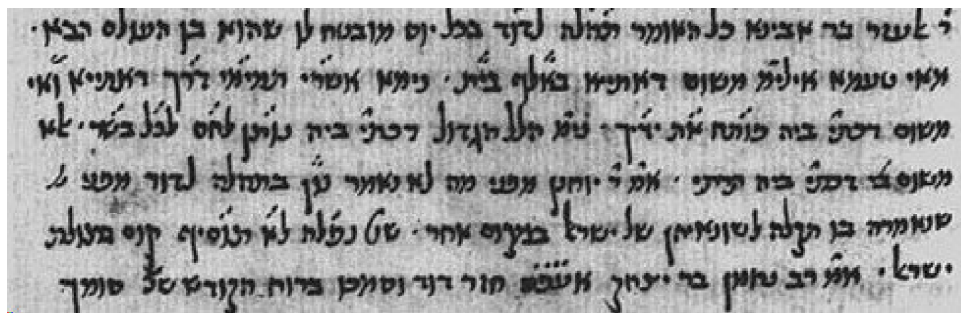 ר׳ לעזר בר אבינא כל האומר תהלה לדוד בכל יום מובטח לו שהוא בן העולם הבא ·
מאי טעמא אילימ׳ משום דאתיא באלף בית · נימא אשרי תמימי דרך דאתייא ואי
משום דכתי׳ ביה פותח את ידיך · נימ׳ הלל הגדול דכתי׳ ביה נותן לחם לכל בשר · לא
משום דכתי׳ ביה תריתי · אמ׳ ר׳ יוחנן מפני מה לא נאמר נון בתהלה לדוד מפני
שנאמרה בו תקלה לשונאיהן של ישראל בפסוק אחד · שנ׳ נפלה לא תוסיף קום בתולת
ישראל · אמ׳ רב נחמן בר יצחק אעפ״כ חזר דוד וסמכן ברוח הקודש שנ׳ סומך